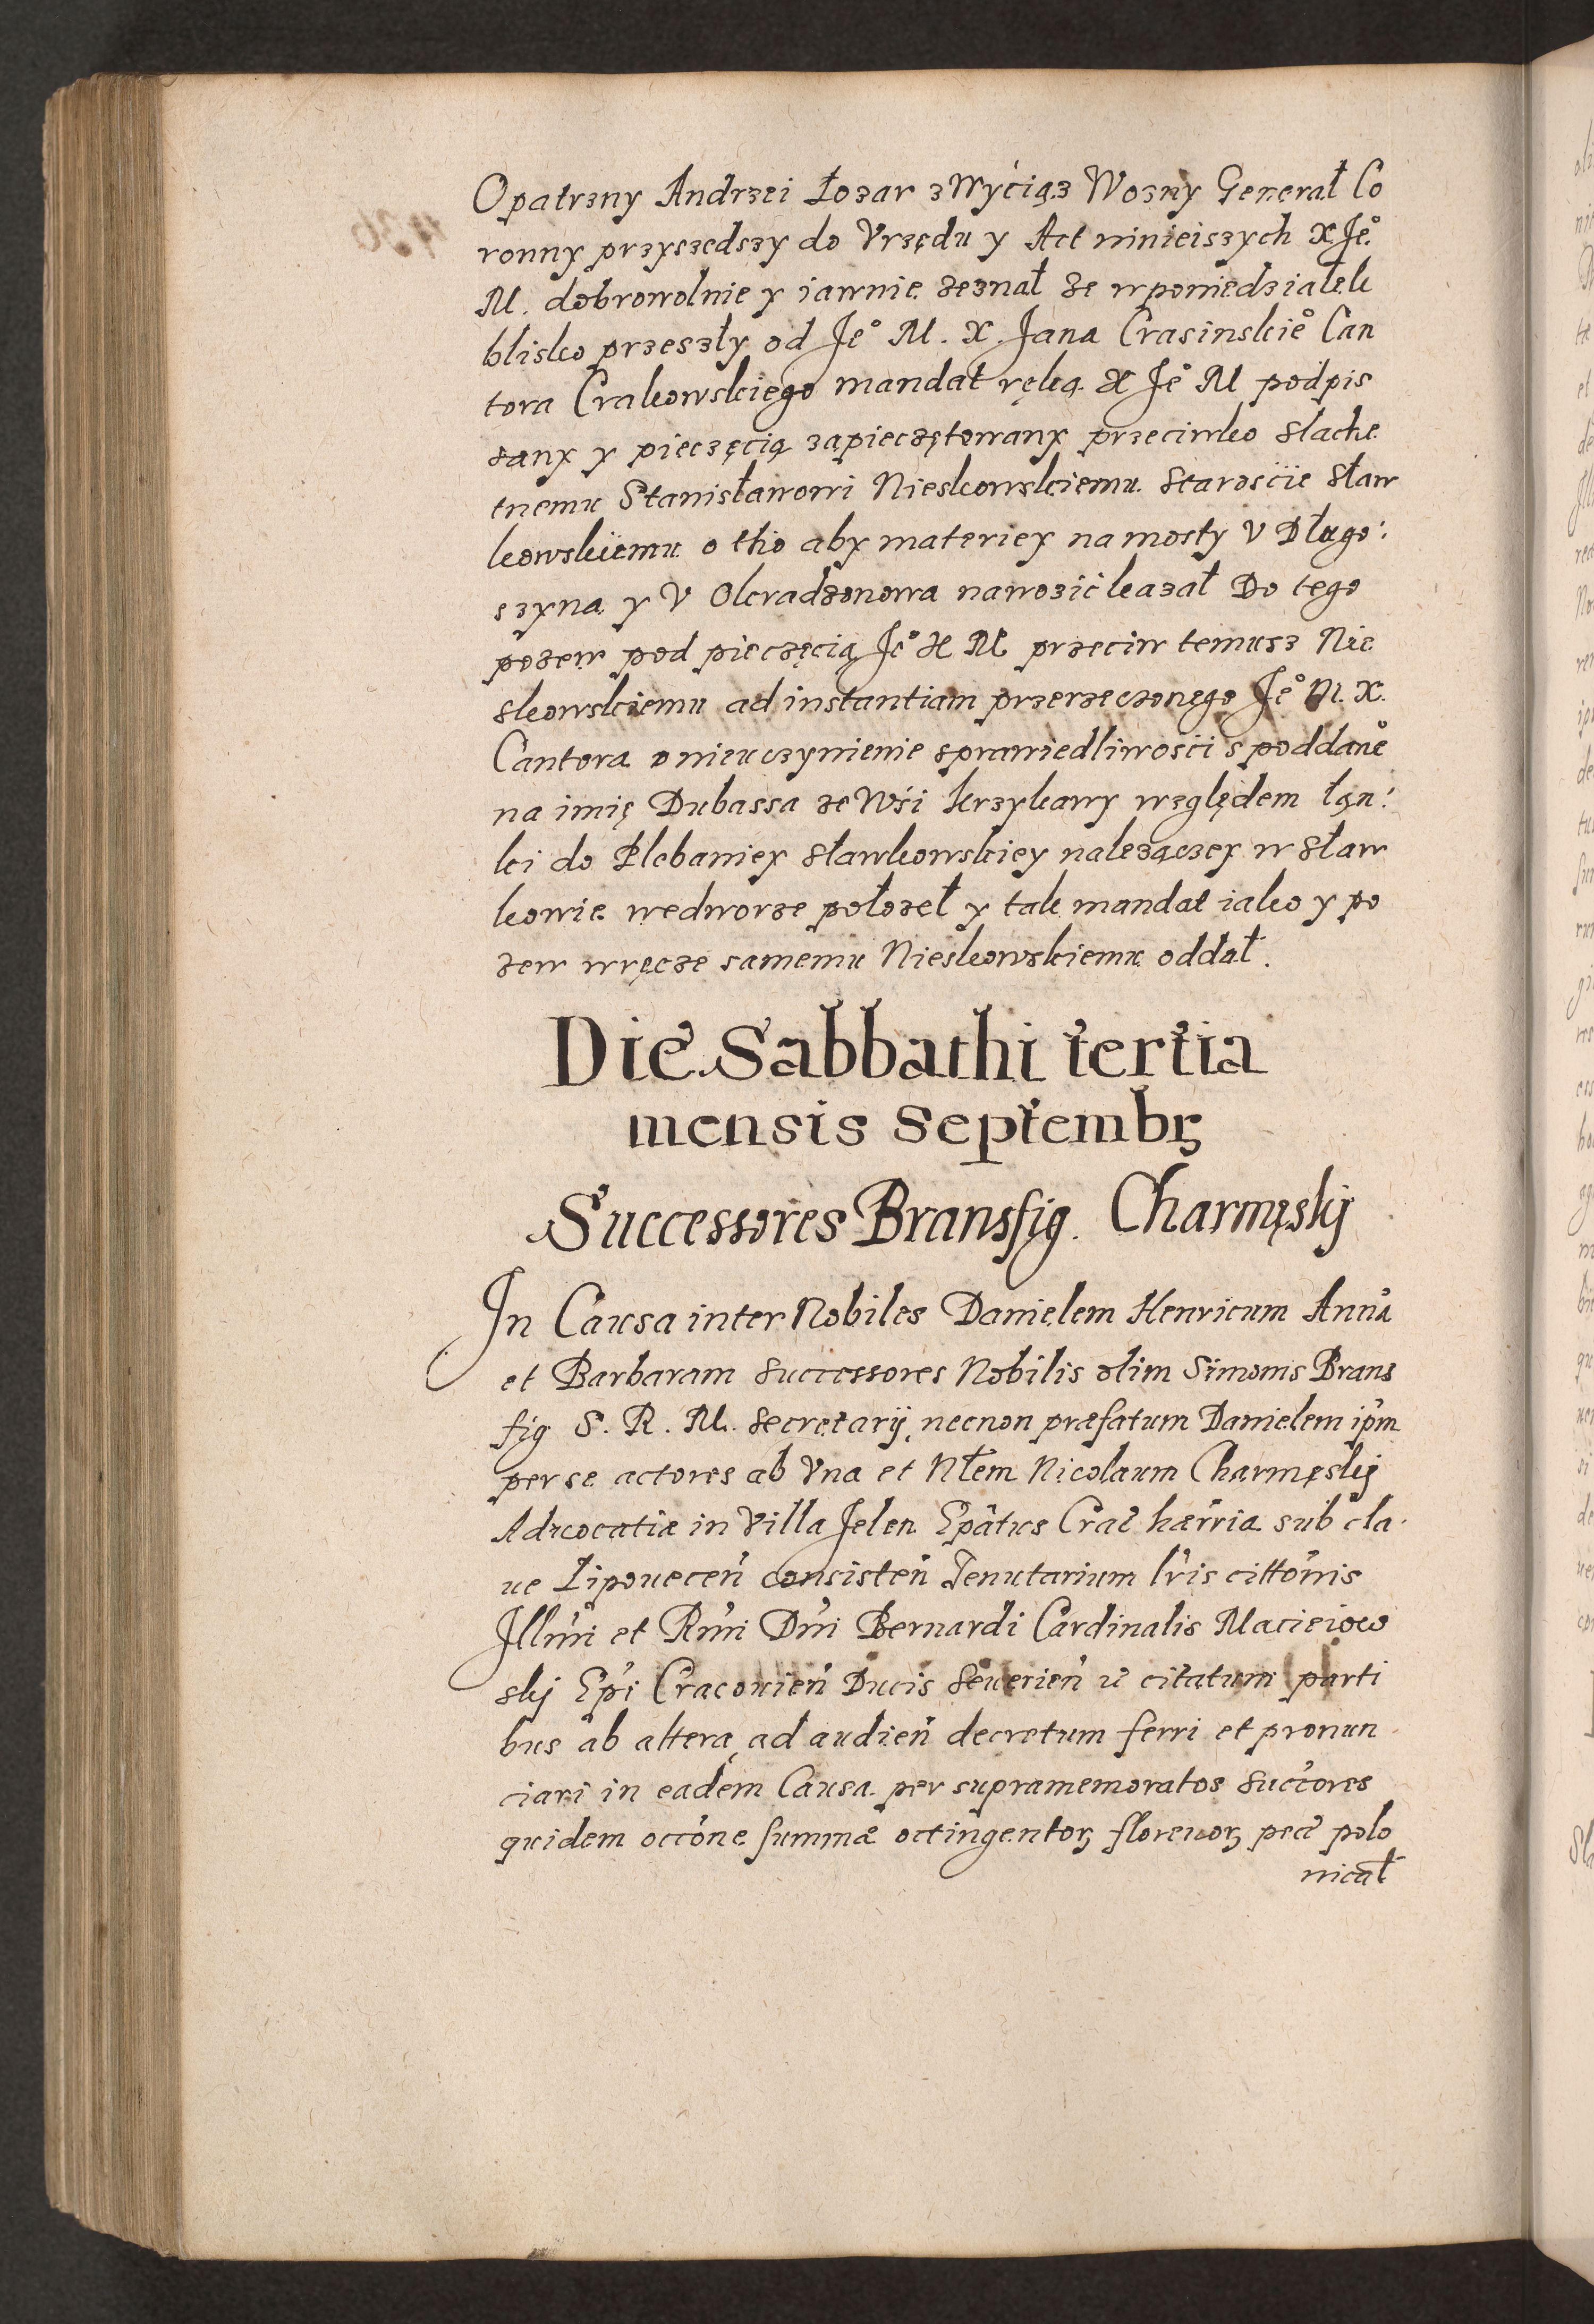 Opatrzny Andrzei Łozar z Wyciąz Wozny Generał Co
ronny przyszedszy do Vrzędu y Act ninieiszych X Je°
M. dobrowolnie y iawnie zeznał ze w poniedziałek
blisko przeszły od Je° M. X. Jana Crasinskie° Can
tora Crakowskiego mandat ręką X Je° M podpis
sany y pieczęcią zapieczętowany przeciwko slache
tnemu Stanisławowi Nieskowskiemu Staroscie Sław
kowskiemu o tho aby materiey na mosty V Długo:
szyna y V Okradzonowa nawozić kazał Do tego
pozew pod pieczęcią Je° X M przeciw temusz Nie
skowskiemu ad instantiam przerzeczonego Je° M. X.
Cantora o nieuczynienie sprawiedliwosci s poddane°
na imię Dubassa ze Wsi Krzykawy względem łąn:
ki do Plebaniey Sławkowskiey nalezączey w Sław
kowie wedworze połozeł y tak mandat iako y po
zew wręcze samemu Nieskowskiemu oddał.
Die Sabbathi tertia
mensis Septembꝝ
Successores Bransfig. Charmęskÿ
In Causa inter Nobiles Danielem Henricum Annā
et Barbaram successores Nobilis olim Simonis Brans
fig S. R. M. Secretarij, necnon præfatum Danielem ipm̄
per se actores ab Vna et Nłem Nicolaum Charmęskÿ
Aduocatiæ in Villa Jelen Epātus Crac̄ hærria sub cla
ue Lipouecen̄ consisten̄ Tenutarium lr̄is cittōnis
Illmī et Rmī Dnī Bernardi Cardinalis Macieiow
skÿ Epī Cracouien̄ Ducis Seuerien̄ r̄ citatum parti
bus ab altera, ad audien̄ decretum ferri et pronun
ciari in eadem Causa per supramemoratos succ̄ores
quidem occōne summæ octingentoꝝ florenoꝝ pec̄ polo
nicał